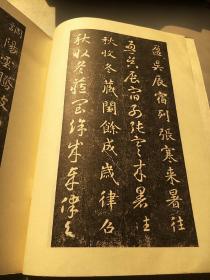 盈昃辰宿列張寒来暑往
盈昃辰宿列張寒来暑往
秋收冬藏閏餘成歲律呂
秋收冬藏閏餘成歲律呂
調陽雲騰致